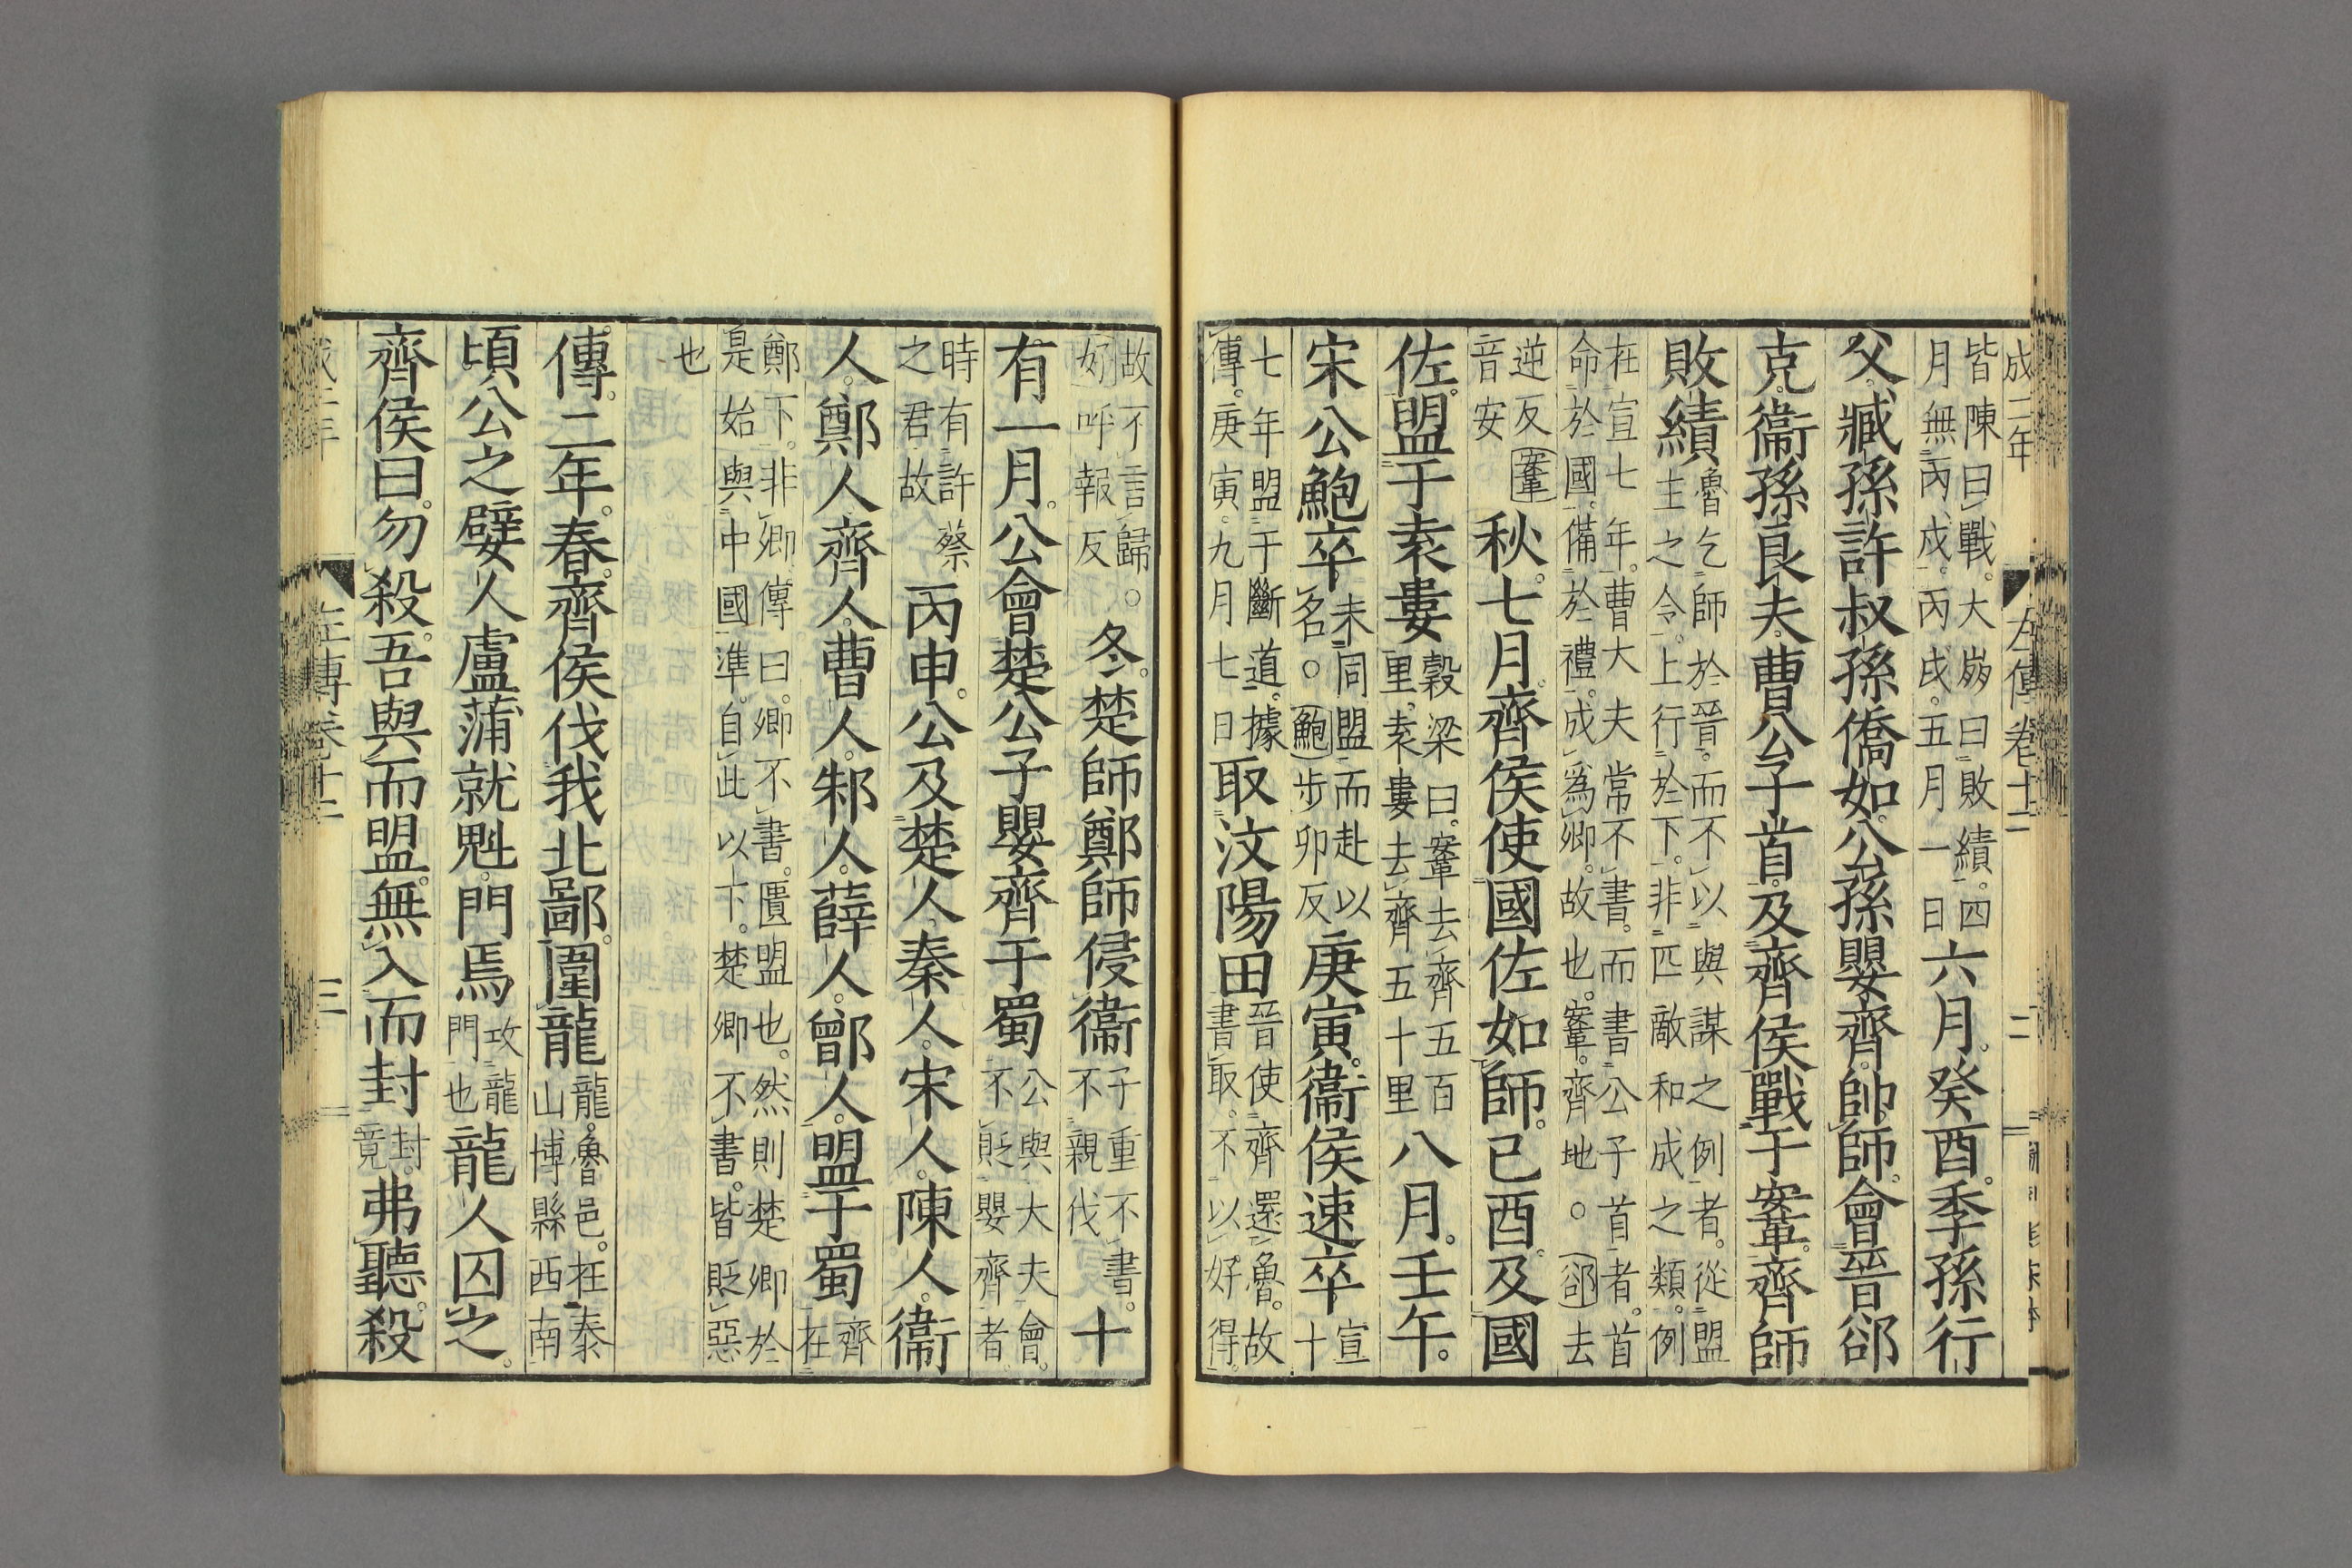 成二年 左傳卷十二 二
皆陳曰戰。大崩曰敗績。四
月無丙戌。丙戌。五月一日
六月。癸酉。季孫行
父。臧孫許叔孫僑如。公孫嬰齊。帥師。會晉郤
克。衞孫良夫。曹公子首。及齊侯戰于鞌。齊師
敗績
魯乞師於晉。而不以與謀之例者。從盟
主之令。上行於下。非匹敵和成之類。例
在宣七年。曹大夫常不書。而書公子首者。首
命於國。備於禮。成爲卿。故也。鞌。齊地。○郤去
逆反鞌
音安
秋。七月。齊侯使國佐如師。己酉。及國
佐。盟于袁婁
穀梁曰。鞌去齊五百
里。袁婁去齊五十里
八月。壬午。
宋公鮑卒
未同盟而赴以
名。○鮑步卯反
庚寅。衞侯速卒
宣
十
七年盟于斷道。據
傳。庚寅。九月七日
取汶陽田
晉使齊還魯。故
書取。不以好得。
故不言歸。○
好呼報反
冬。楚師鄭師侵衞
子重不書。
不親伐
十
有一月。公會楚公子嬰齊于蜀
公與大夫會。
不貶嬰齊者
時有許蔡
之君故
丙申。公及楚人秦人。宋人。陳人。衞
人。鄭人齊人。曹人。邾人。薛人。鄫人。盟于蜀
齊
在
鄭下。非卿傳曰。卿不書。匱盟也。然則楚卿於
是始與中國準。自此以下。楚卿不書。皆貶惡
也
傳。二年。春。齊侯伐我北鄙。圍龍
龍。魯邑。在泰
山博縣西南
頃公之嬖人盧蒲就魁。門焉
攻龍
門也
龍人囚之。
齊侯曰。勿殺。吾與而盟。無入而封
封。
竟
弗聽。殺
成二年 左傳卷十二 三